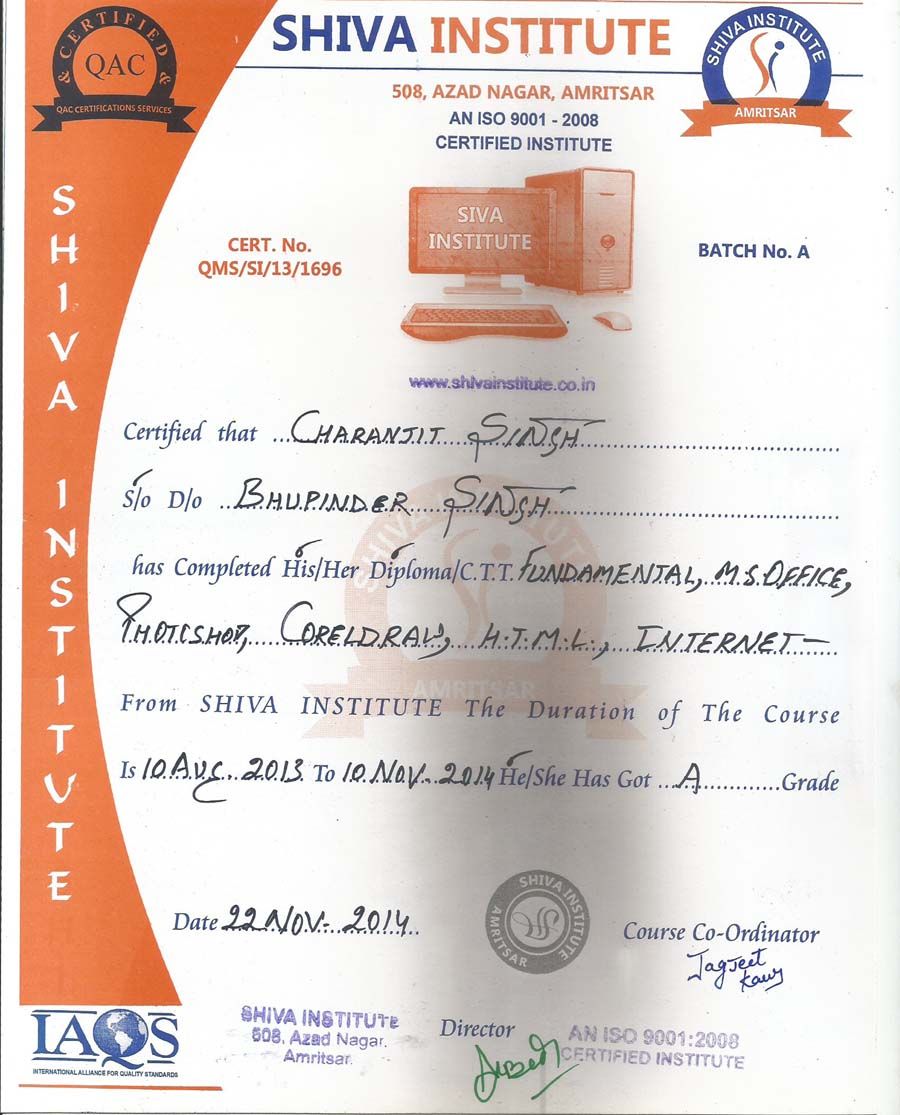 & CERTIFIED &
QAC
QAC CERTIFICATIONS SERVICES
SHIVA INSTITUTE
SHIVA INSTITUTE
AMRITSAR
508, AZAD NAGAR, AMRITSAR
AN ISO 9001 - 2008
CERTIFIED INSTITUTE
SIVA
INSTITUTE
CERT. No.
QMS/SI/13/1696
BATCH No. A
www.shivainstitute.co.in
SHIVA INSTITUTE
Certified that ...CHARANJIT SINGH
S/o D/o ..BHUPINDER SINGH
has Completed His/Her Diploma/C.T.T. FUNDAMENTAL, M.S.OFFICE,
PHOTOSHOP, CORELDRAW, H.T.M.L., INTERNET
SHIVA INSTITUTE
AMRITSAR
From SHIVA INSTITUTE The Duration of The Course
Is 10 AUG. 2013 To 10 NOV. 2014 He/She Has Got ...A...Grade
SHIVA INSTITUTE
AMRITSAR
Date 22 NOV- 2014
Course Co-Ordinator
Jagjeet
Kaur
IAQS
INTERNATIONAL ALLIANCE FOR QUALITY STANDARDS
SHIVA INSTITUTE
508, Azad Nagar,
Amritsar.
Director
AN ISO 9001:2008
CERTIFIED INSTITUTE